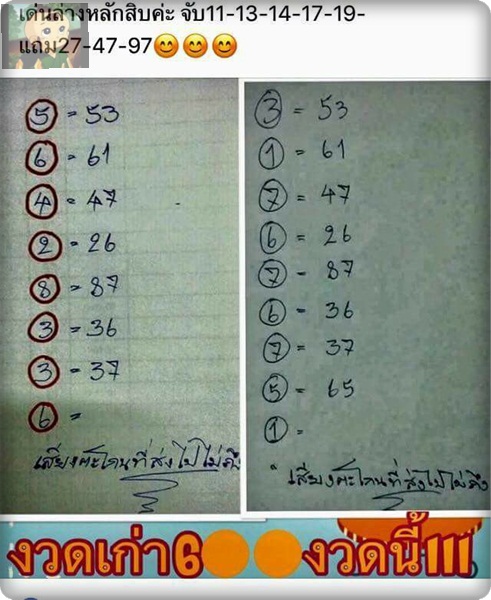 เด่นล่างหลักสิบค่ะ จับ11-13-14-17-19-
แถม27-47-97😊😊😊
5 = 53
6 = 61
4 = 47
2 = 26
8 = 87
3 = 36
3 = 37
6 =
เสียงตะโกนที่ส่งไปไม่ถึง
3 = 53
1 = 61
7 = 47
6 = 26
7 = 87
6 = 36
7 = 37
5 = 65
1 =
เสียงตะโกนที่ส่งไปไม่ถึง
งวดเก่า6 งวดนี้111